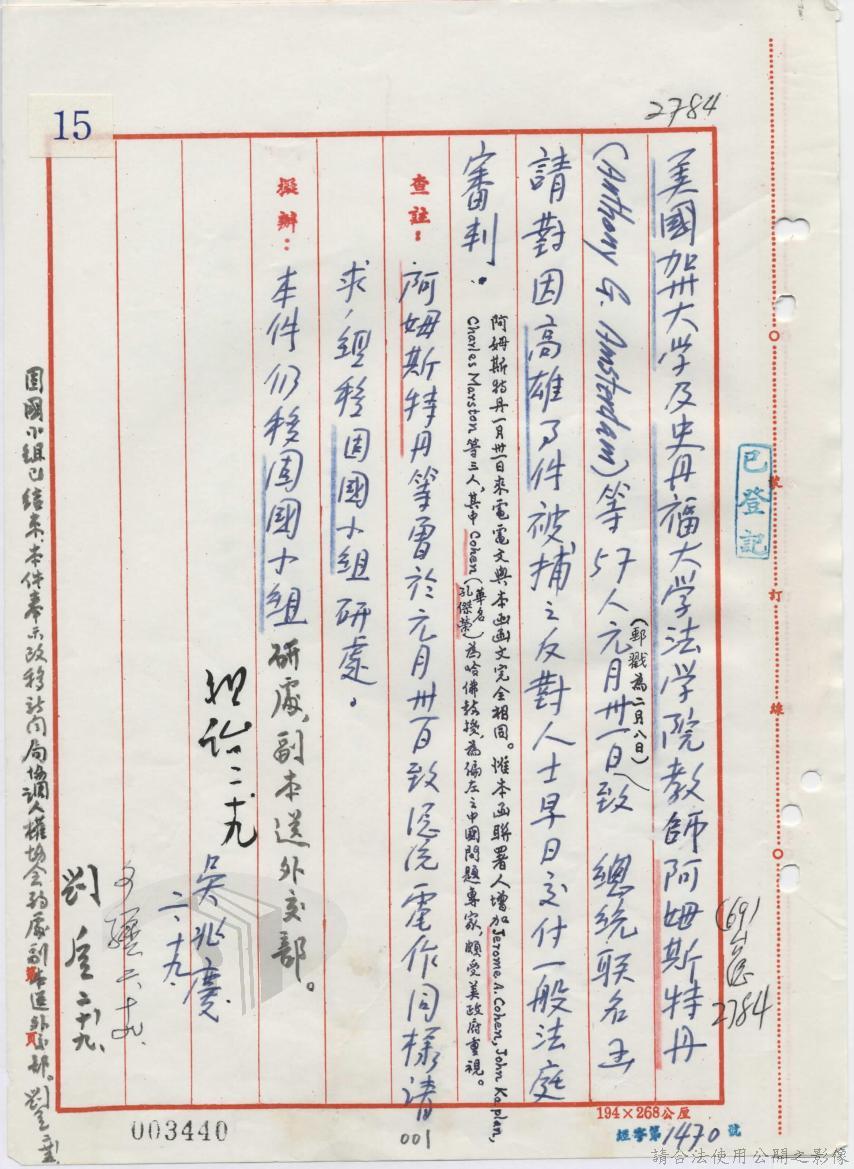 15
2784
美國加州大学及史丹福大学法学院教師阿姆斯特丹
(Anthony G. Amsterdam)等57人元月卅一日致　總統联名函
(郵戳為二月八日)
請對因高雄事件被捕之反對人士早日交付一般法庭
審判。
阿姆斯特丹一月卅一日來電電文與本函函文完全相同。惟本函聯署人增加Jerome A. Cohen, John Kaplan,
Charles Marston 等三人,其中 Cohen(華名孔傑榮)為哈佛教授,為偏左之中國問題專家,頗受美政府重視。
查註：
阿姆斯特丹等曾於元月卅一日致總統電作同樣請
求,經移固國小組研處。
擬辦：
本件仍移固國小組研處,副本送外交部。
二.十九
吳兆慶
二.十九.
劉 二.十九.
固國小組已結束,本件奉示改移新聞局協調人權協會研處副本送外交部。
已登記
訂
線
(69)
2784
194×268公厘
1470號
003440
001
請合法使用公開之影像